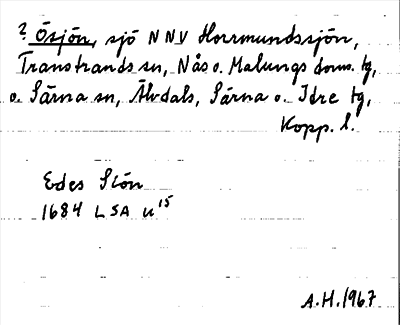 ? Ösjön, sjö NNV Horrmundssjön,
Transtrands sn, Nås o. Malungs doms. tg,
o. Särna sn, Älvdals, Särna o. Idre tg,
Kopp. l.
Edes Siön
1684 LSA u 15
A.H. 1967